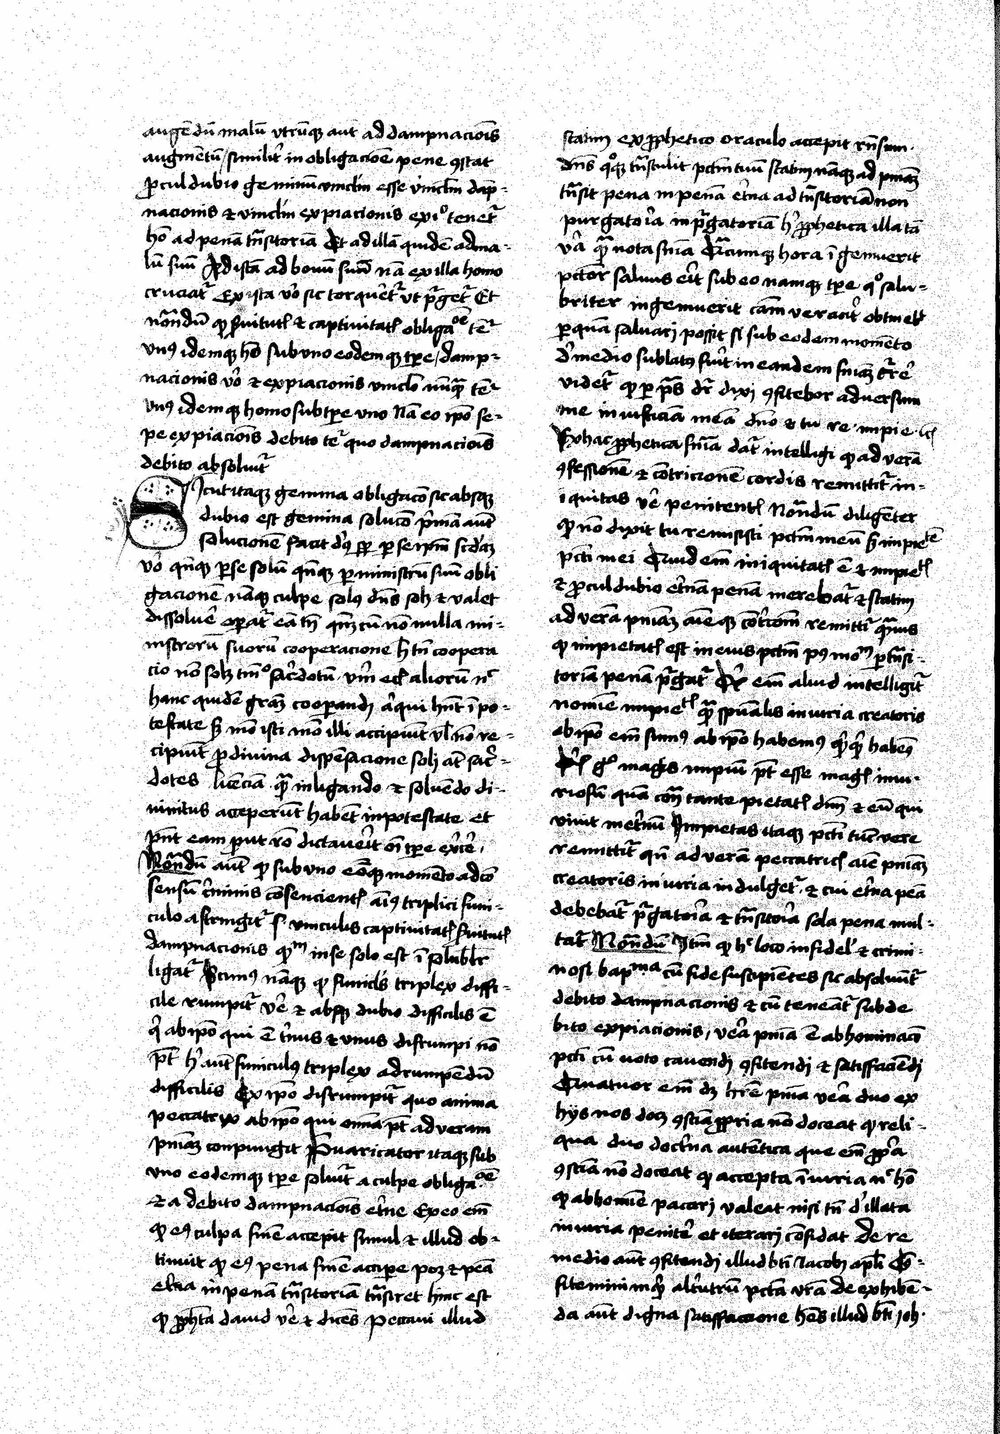 augēdū malū utrūq; aut ad dampnaciōis
augmētū / similit̄ in obligaciōe pene ɔstat
ꝓcul dubio geminū vinclm̄ esse vinclm̄ dāp-
nacionis ⁊ vinclm̄ expiacionis tenet᷑
hō ad penā tn̄sitoriā Et ad illā quidē ad ma-
lū suū ad istā ad bonū suū nā ex illa homo
cruciat᷑ Ex ista v̄o sic torquet᷑ ut p̄get᷑ Et
nōndū ꝙ s̄uitut ⁊ captivitat obligaoē tet᷑
vnꝰ idemq; hō sub uno eodemq; tp̄e / damp-
nacionis v̄o ⁊ expiacionis vinclo nūq̄ tet᷑
vnꝰ idemq; homo sub tp̄e uno Nā eo ip̄o se-
pe expiaciōis debito tet᷑ quo dampnaciōis
debito absoluit᷑
Sicut itaq; gemina obligacō sic absq;
dubio est gemina solucō p̄mā aūt
solucionē facit dꝰ ꝑ se ip̄m scd̄az
v̄o qn̄q; ꝑ se solū qn̄q; ꝑ ministrū suū obli
gacionē nāq; culpe solꝰ dn̄s solȝ ⁊ valet
dissoluē̄ oꝑat᷑ eā tn̄ cū nō nulla mi-
nistrorū suorū cooperacione tn̄ coopera
cio nō solȝ tm̄ sac̄dotū aliorū
hanc quidē grāȝ cooperandi hn̄t ī po-
testate mō isti mō illi accipiūt vl̄ nō re-
cipiūt ꝓ divina dispēsacione soli at̄ sac̄-
dotes licēciā in ligando ⁊ soluēdo di-
vinitus acceperūt habēt in potestate et
pn̄t eam ꝓut rō dictaverit oī tp̄e ex̄c̄e.
Nōndū aūt ꝙ sub uno eōq; momēto ad cō
sensū c̄iminis cōsencient aīꝰ triplici funi-
culo astringit᷑ s. vinculis captivitat s̄uitut
dampnacionis in se solo est
ligat᷑ Scimꝰ nāq; ꝙ funiclꝰ triplex diffi-
cile rumpit᷑ v̄e ⁊ absq; dubio difficilis ē
q̄ ab ip̄o qui ē t̄nus ⁊ unus disrumpi nō
pt̄ h aūt funiculꝰ triplex ad rumpēdū
difficilis Ex ipo disrumpit᷑ quo anima
peccatrix ab ip̄o qui omīa pt̄ ad veram
pn̄iaȝ conpungit Pvaricator itaq; sub
uno eodemq; tp̄e soluit᷑ a culpe obligaoē
⁊ a debito dampnaciōis et̄ne Ex eo em̄
ꝙ eꝰ culpa finē accepit simul ⁊ illud ob-
tinuit ꝙ eꝰ pena finē accipe poȝ ⁊ pēa
et̄na in penā tn̄sitoriā tn̄siret hinc est
ꝙ ꝓph̄ta david v̄e ⁊ dicēs Peccaui illud
statim ex ꝓphetico oraculo accepit rn̄sum.
Dn̄s qͦq; tn̄stulit pctm̄ tuū statim nāq; ad pn̄iaȝ
tn̄sit pena in penā et̄na ad tn̄sitoriā non
purgatoīa in p̄gatoriā h̄ ꝓphetica illa tā
v̄a q̄ nota sn̄ia Q̄cumq; hora ī genuerit
pctōr saluus erit sub eo namq; tp̄e qͦ salu-
briter ingenuerit eam veracit̄ obtinebit
ꝑ quā saluari possit si sub eodem momēto
de medio sublatꝰ fuit in eandem sniaȝ t̄re
videt᷑ ꝙ ꝑ p̄s dr̄ dixi ɔfitebor adversum
me iniusticiā meā dn̄o ⁊ tu re. impie.
Ex hac ꝓphetica sn̄ia dat᷑ intelligi ꝙ ad verā
ɔfessionē ⁊ cōtricionē cordis remittit᷑ in-
iquitas v̄e penitent Nōndū diligēter
ꝙ nō dixit tu remisisti pctm̄ meū s̄ impietē
pcti mei Quid em̄ iniquitat ē ⁊ impiet
⁊ ꝓcul dubio et̄nā penā merebat᷑ ⁊ statim
ad verā pn̄iaȝ aīe q; cōt̄com̄ remittit᷑ q̄mvis
ꝙ impietat est in eius pctm̄ ꝑ tn̄si-
toriam penā p̄gat᷑ em̄ aliud intelligit᷑
nomīe impiet q̄ sp̄ualis iniuria creatoris
ab ip̄o em̄ sumꝰ ab ip̄o habemꝰ habem̄ꝰ
gͦ magis impiū pt̄ esse mag iniu-
riosū quā cont̄ tante pietat dn̄m ⁊ eū qui
vivit inet̄nū Impietas itaq; pcti tūc vere
remittit᷑ qn̄ ad verā peccatric aīe pn̄iaȝ
creatoris iniuria indulget᷑. ⁊ cui et̄na pēa
debebat᷑ p̄gatoīa ⁊ tn̄sitoīa sola pena mul-
tat᷑ Nōndū Itm̄ ꝙ hͨ loco infidel ⁊ crimi-
nosi bapma cū fide suscipiētes sic absoluūt᷑
debito dampnacionis ⁊ cū teneāt᷑ sub de
bito expiacionis, v̄ea pn̄ia ē abhominacō
pcti cū voto cavendi ɔfitendi ⁊ satisfaciēdi
Quatuor em̄ dȝ hr̄e pn̄ia v̄ea duo ex
hijs nos doȝ ɔsciā ꝓpria nō doceat ꝙ reli-
qua duo doct̄na autētica que em̄ ꝓp̄a
ɔsciā nō doceat ꝙ accepta īiuria hō
ꝙ ab homīe pacari valeat nisi tn̄ d̄ illata
iniuria penitet̄ et iterari cōfidat De re
medio aūt ɔfitendi illud bt̄i Iacobi apl̄i Cō-
fitemini alt̄utrū pctā vr̄a De exhibē-
da aūt digna satisfactione hēs illud bt̄i Joh.